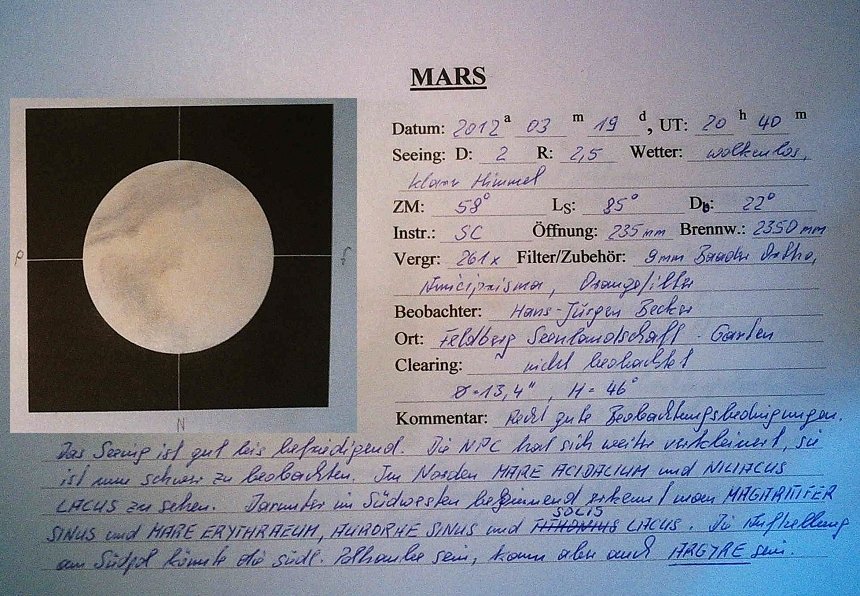 MARS
Datum: 2012 a 03 m 19 d, UT: 20 h 40 m
Seeing: D: 2 R: 2,5 Wetter: wolkenlos,
klarer Himmel
ZM: 58° LS: 85° Db: 22°
Instr.: SC Öffnung: 235 mm Brennw.: 2350 mm
Vergr: 261x Filter/Zubehör: 9mm Baader Ortho,
Amiciprisma, Orangefilter
Beobachter: Hans-Jürgen Becker
Ort: Feldberg Seenlandschaft - Garten
Clearing: nicht beobachtet
Ø=13,4", H = 46°
P
f
N
Kommentar: Recht gute Beobachtungsbedingungen.
Das Seeing ist gut bis befriedigend. Die NPC hat sich weiter verkleinert, sie
ist nun schwer zu beobachten. Im Norden MARE ACIDALIUM und NILIACUS
LACUS zu sehen. Darunter im Südwesten beginnend erkennt man MAGARITIFER
SINUS und MARE ERYTHRAEUM, AURORAE SINUS und SOLIS LACUS. Die Aufhellung
am Südpol könnte die südl. Polhaube sein, kann aber auch ARGYRE sein.